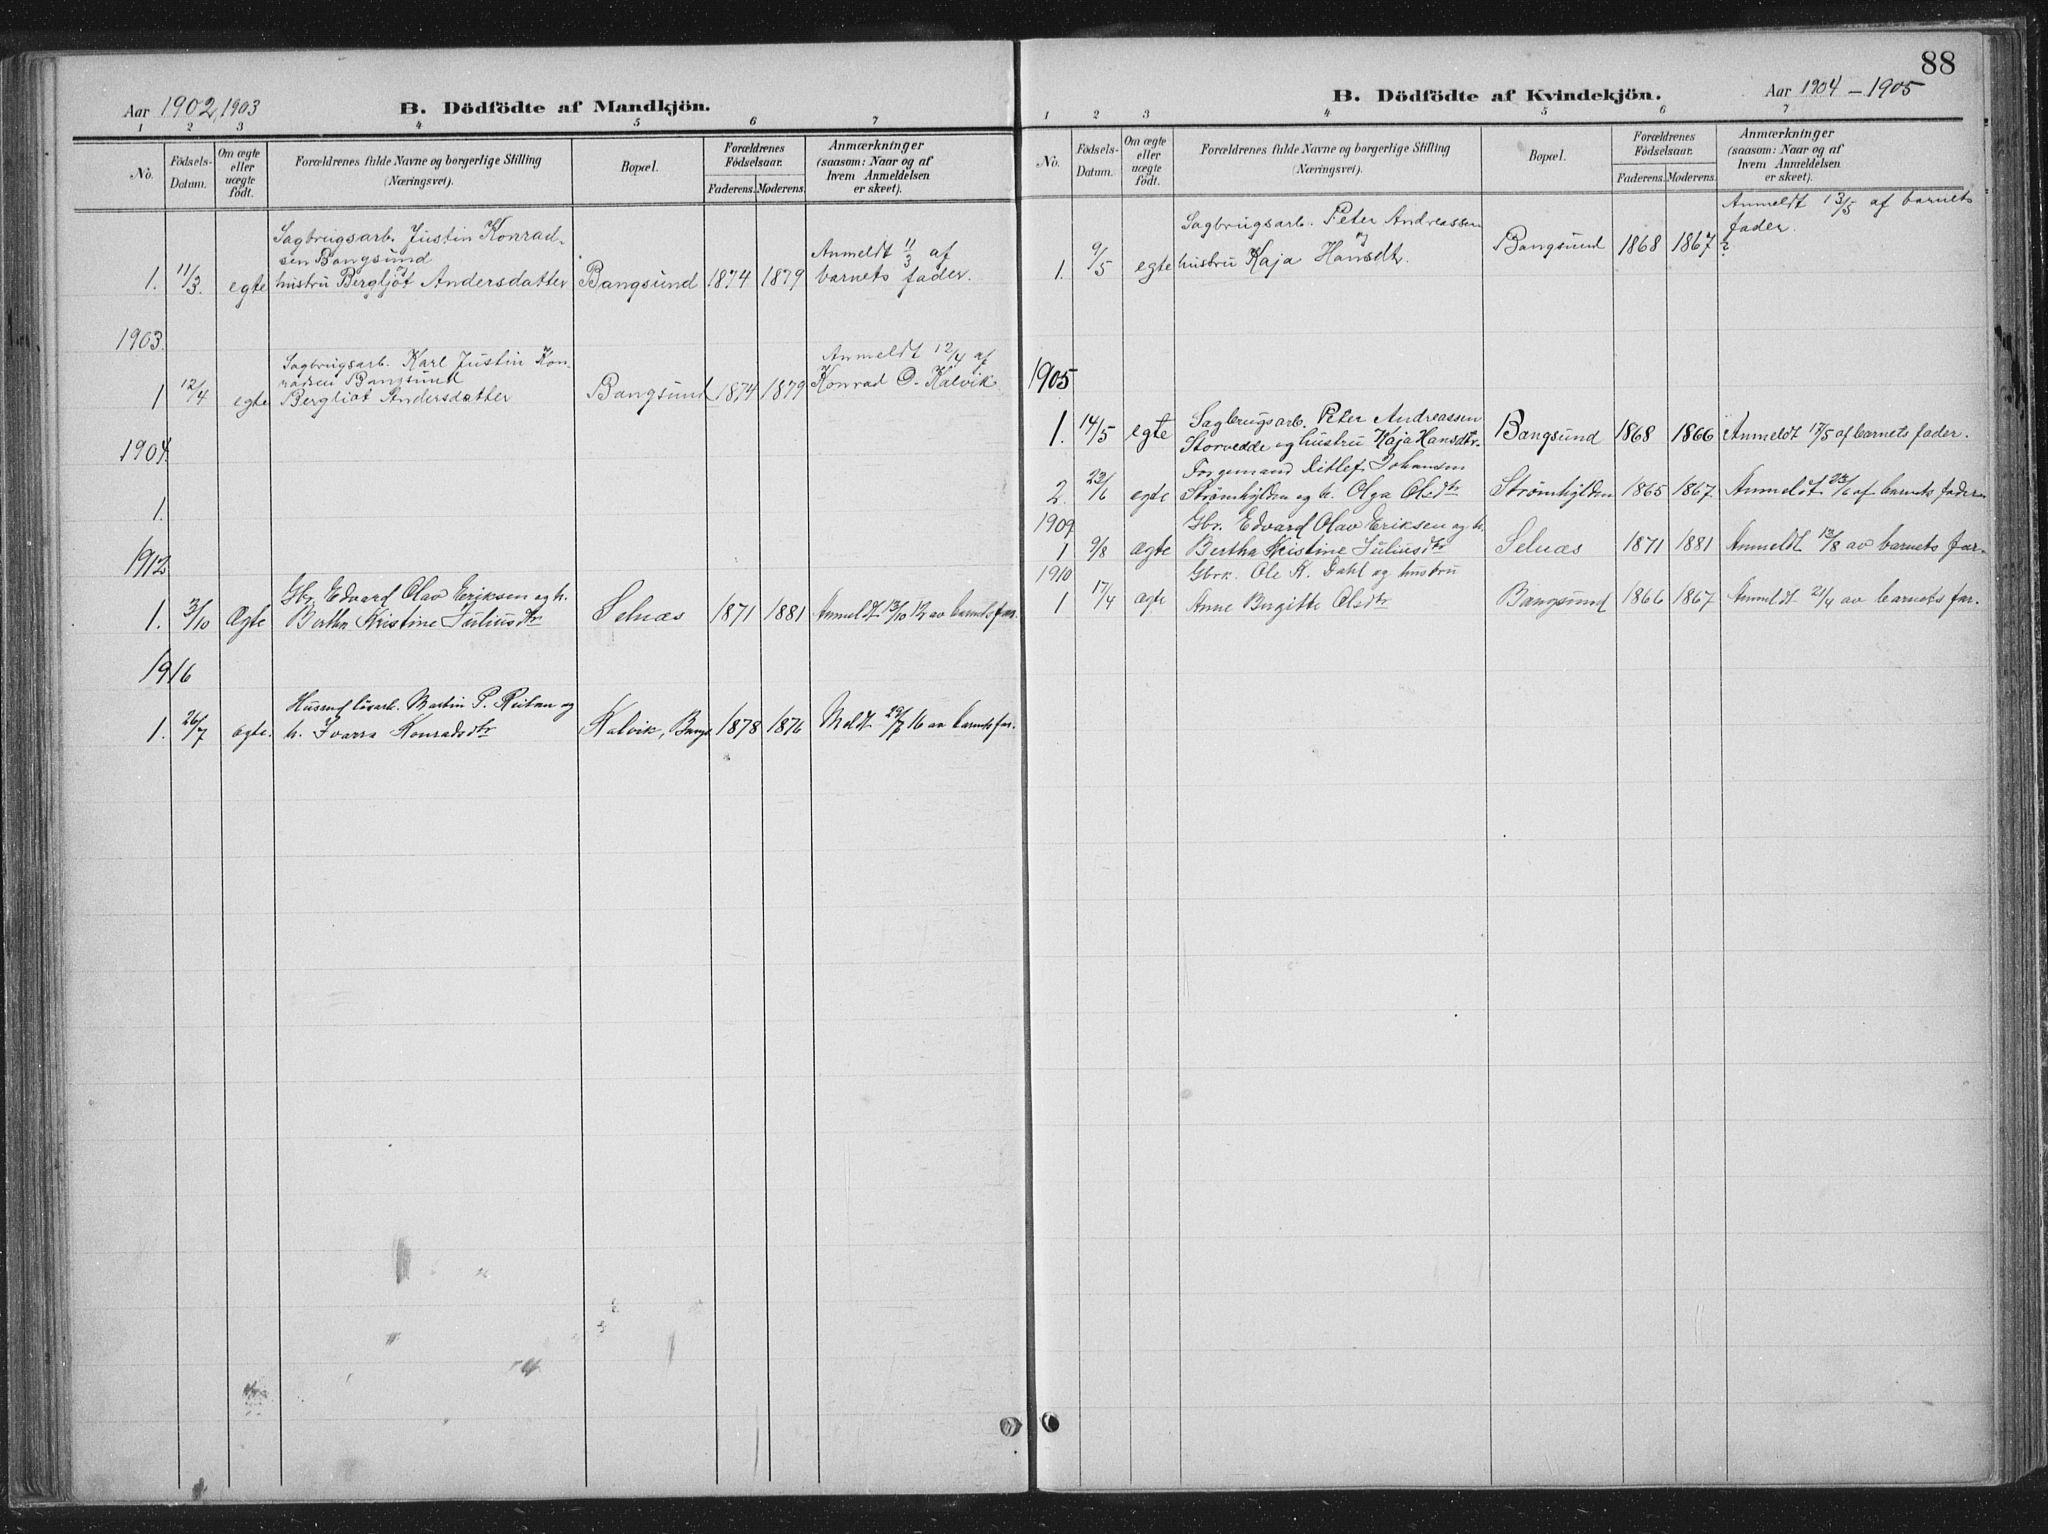 88
Aar 1902, 1903 B. Dödfödte af Mandkjön.
1 2 3 4 5 6 7
No. Födsels-Datum. Om ægte eller uægte födt. Forældrenes fulde Navne og borgerlige Stilling (Næringsvei). Bopæl. Forældrenes Födselsaar. Faderens. Moderens. Anmærkninger (saasom: Naar og af hvem Anmeldelsen er skeet).
Sagbrugsarb. Justin Konrad-
sen Bangsund
1. 11/3. egte hustru Bergljót Andersdatter Bangsund 1874 1879 Anmeldt 11/3 af
barnets fader.
1903.
Sagbrugsarb. Karl Justin Kon-
radsen Bangsund
1 12/4 egte Bergliot Andersdatter Bangsund 1874 1879 Anmeldt 12/4 af
Konrad O. Kalvik
1904.
1.
1912
Gbr. Edvard Olav Eriksen og h.
1. 3/10 Ægte Bertha Kristine Juliusdtr Selnæs 1871 1881 Anmeldt 13/10 12 av barnets far.
1916
Martin P. Reitan og
1. 26/7 ægte. h. Ivarra Konradsdtr Kalvik, Bangs 1878 1876 Meldt 29/7 16 av barnets far.
B. Dödfödte af Kvindekjön. Aar 1904 - 1905
1 2 3 4 5 6 7
No. Födsels-Datum. Om ægte eller uægte födt. Forældrenes fulde Navne og borgerlige Stilling (Næringsvei). Bopæl. Forældrenes Födselsaar. Faderens. Moderens. Anmærkninger (saasom: Naar og af hvem Anmeldelsen er skeet).
Sagbrugsarb. Peter Andreassen
1. 9/5 egte hustru Kaja Hansdtr. Bangsund 1868 1867? Anmeldt 13/5 af barnets
fader.
1905
Sagbrugsarb. Peter Andreassen
1. 14/5 egte Storvedde og hustru Kaja Hansdtr. Bangsund 1868 1866 Anmeldt 17/5 af barnets fader.
Forgemand Ditlef Johansen
2. 23/6 egte Strømhylden og h. Olga Olsdtr Strømhylden 1865 1867 Anmeldt 23/6 af barnets fader
1909
Gbr. Edvard Olav Eriksen og h.
1 9/8 ægte Bertha Kristine Juliusdtr Selnæs 1871 1881 Anmeldt 13/8 av barnets far.
1910
Gbrk. Ole K. Dahl og hustru
1 17/4 ægte Anne Birgitte Olsdtr Bangsund 1866 1867 Anmeldt 21/4 av barnets far.